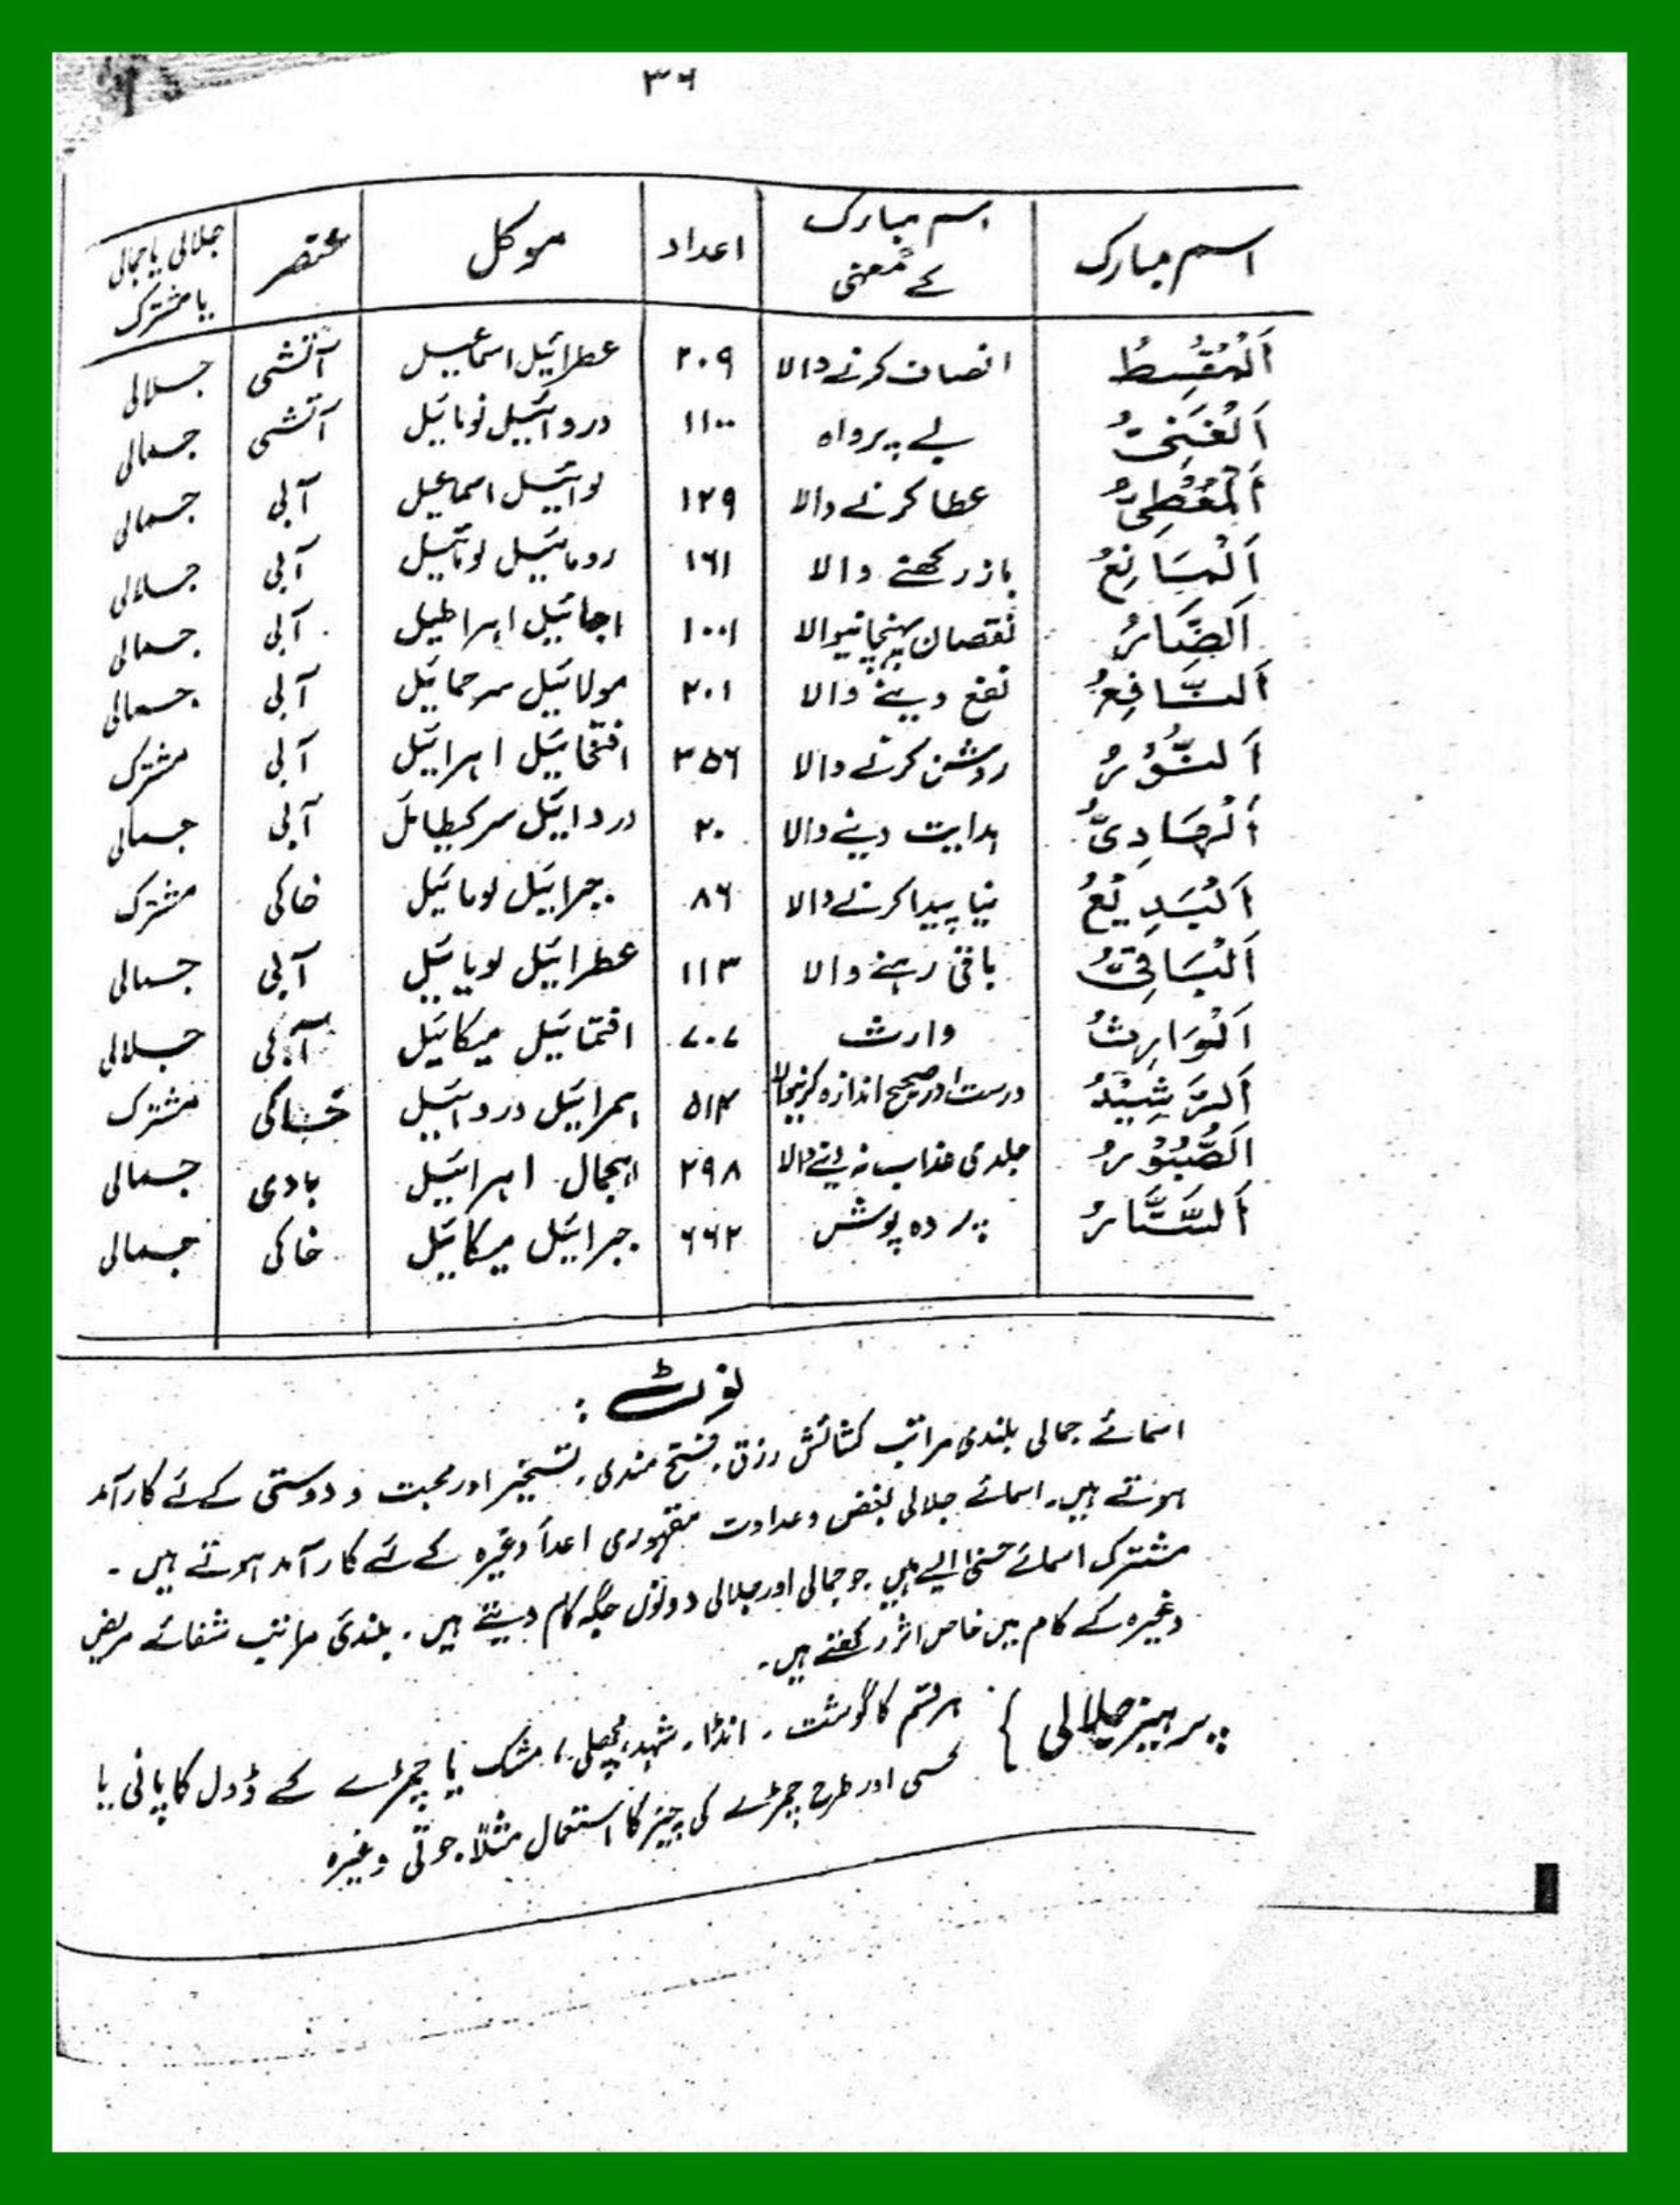 ۳۶
اسم مبارک | اسم مبارک کے معنی | اعداد | موکل | عنصر | جلالی یا جمالی یا مشترک
اَلْمُقْسِطُ | انصاف کرنے والا | ۲۰۹ | عطرائیل اسماعیل | آتشی | جلالی
اَلْغَنِیُّ | بے پرواہ | ۱۱۰۰ | دردائیل نومائیل | آتشی | جمالی
اَلْمُعْطِیُ | عطا کرنے والا | ۱۲۹ | لوائیل اسماعیل | آبی | جمالی
اَلْمَانِعُ | باز رکھنے والا | ۱۶۱ | رومائیل لومائیل | آبی | جلالی
اَلضَّارُ | نقصان پہنچانیوالا | ۱۰۰۱ | اجائیل اہراطیل | آبی | جمالی
اَلنَّافِعُ | نفع دینے والا | ۲۰۱ | مولائیل سرحمائیل | آبی | جمالی
اَلنُّوْرُ | روشن کرنے والا | ۲۵۶ | افتحائیل اہرائیل | آبی | مشترک
اَلْھَادِیُّ | ہدایت دینے والا | ۲۰ | دردائیل سرکیطائل | آبی | جمالی
اَلْبَدِیْعُ | نیا پیدا کرنے والا | ۸۶ | جبرائیل لومائیل | خاکی | مشترک
اَلْبَاقِیُّ | باقی رہنے والا | ۱۱۳ | عطرائیل لویائیل | آبی | جمالی
اَلْوَارِثُ | وارث | ۷۰۷ | افتمائیل میکائیل | آبی | جلالی
اَلرَّشِیْدُ | درست اور صحیح اندازہ کرنیوالا | ۵۱۴ | امرائیل دردائیل | خاکی | مشترک
اَلصَّبُوْرُ | جلدی عذاب نہ دینے والا | ۲۹۸ | اہجمال اہرائیل | بادی | جمالی
اَلسَّتَّارُ | پردہ پوش | ۶۶۲ | جبرائیل میکائیل | خاکی | جمالی
نوٹ :
اسمائے جمالی بلندی مراتب کشائش رزق ۔ فتح مندی ۔ تسخیر اور محبت و دوستی کے لئے کارآمد
ہوتے ہیں۔ اسمائے جلالی بغض و عداوت مقہوری اعدأ وغیرہ کے لئے کارآمد ہوتے ہیں ۔
مشترک اسمائے حسنیٰ ایسے ہیں جو جمالی اور جلالی دونوں جگہ کام دیتے ہیں ۔ بلندئ مراتب شفائے مریض
وغیرہ کے کام میں خاص اثر رکھتے ہیں۔
پرہیز جلالی } ہر قسم کا گوشت ۔ انڈا ۔ شہد، مچھلی، مشک یا چمڑے کے ڈول کا پانی یا
کسی اور طرح چمڑے کی چیز کا استعمال مثلاً جوتی وغیرہ